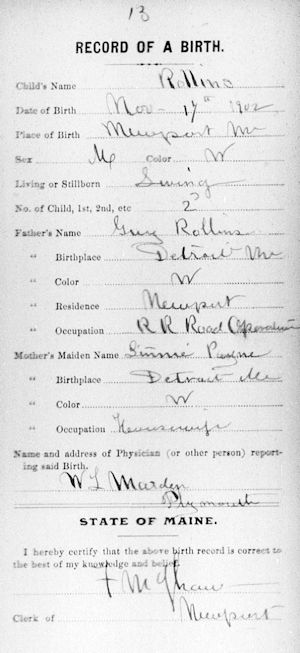 13
RECORD OF A BIRTH.
Child's Name Rollins
Date of Birth Nov 17th 1902
Place of Birth Newport Me
Sex M Color W
Living or Stillborn Living
No. of Child, 1st, 2nd, etc 2
Father's Name Rollins
" Birthplace Detroit Me
" Color W
" Residence Newport
" Occupation R R Road
Mother's Maiden Name Payne
" Birthplace Detroit Me
" Color W
" Occupation Housewife
Name and address of Physician (or other person) report-
ing said Birth.
W L Marden
Plymouth
STATE OF MAINE.
I hereby certify that the above birth record is correct to
the best of my knowledge and belief.
F M Shaw
Clerk of Newport